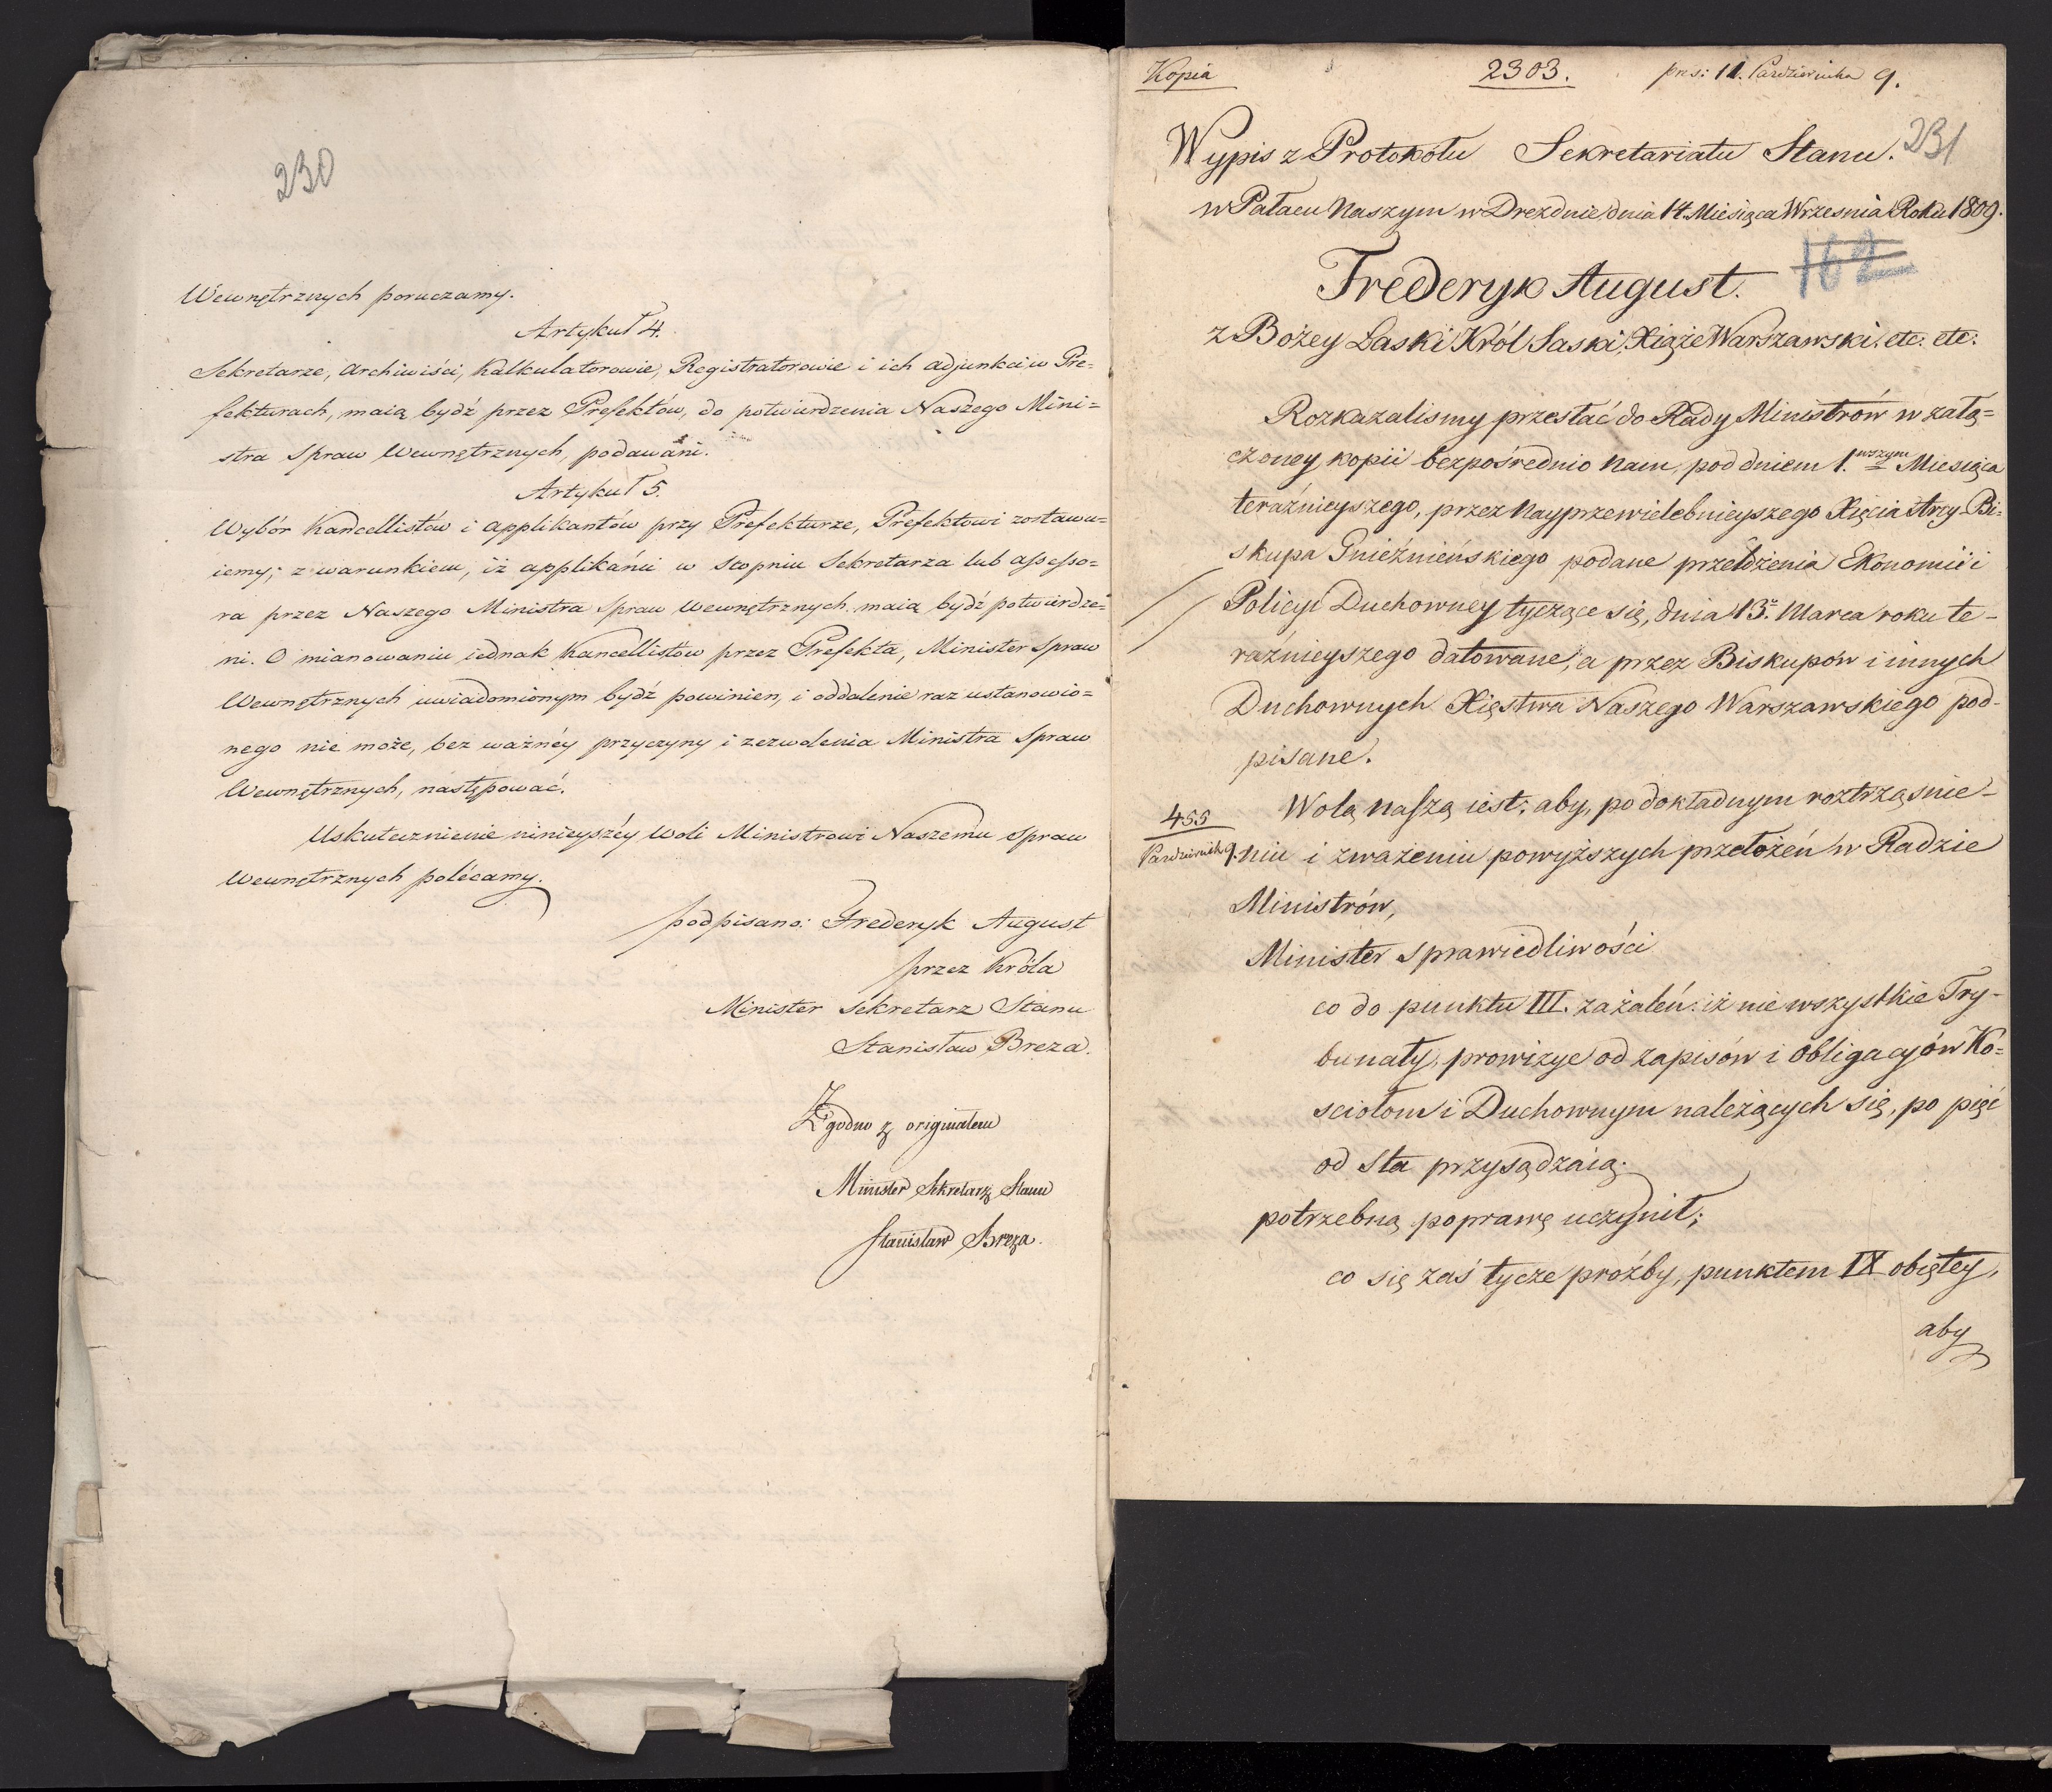 230
Wewnętrznych poruczamy.
Artykuł 4.
Sekretarze, Archiwiści, Kalkulatorowie, Registratorowie i ich adjunkci w Pre=
fekturach, maią bydź przez Prefektów, do potwierdzenia Naszego Mini=
stra Spraw Wewnętrznych, podawani.
Artykuł 5.
Wybór Kancellistów i applikantów przy Prefekturze, Prefektowi zostawu=
iemy; z warunkiem, iż applikanci w stopniu Sekretarza lub assesso=
ra przez Naszego Ministra Spraw Wewnętrznych maią bydź potwierdze=
ni. O mianowaniu iednak Kancellistów przez Prefekta, Minister Spraw
Wewnętrznych uwiadomionym bydź powinien, i oddalenie raz ustanowio=
nego nie może, bez ważnéy przyczyny i zezwolenia Ministra Spraw
Wewnętrznych, następować.
Uskutecznienie ninieyszéy Woli Ministrowi Naszemu Spraw
Wewnętrznych polécamy.
podpisano: Frederyk August
przez Króla
Minister Sekretarz Stanu
Stanisław Breza.
Zgodno z originałem
Minister Sekretarz Stanu
Stanisław Breza.
Kopia 2303. pres: 11. Pazdziernika 9.
Wypis z Protokółu Sekretariatu Stanu. 231
w Pałacu Naszym w Dreznie dnia 14. Miesiąca Wrzesnia Roku 1809.
162
Frederyk August.
z Bożey Łaski Król Saski, Xiąże Warszawski. etc: etc:
Rozkazalismy przesłać do Rady Ministrów w załą=
czoney kopii bezpośrednio Nam, pod dniem 1.wszym Miesiąca
teraźnieyszego, przez Nayprzewielebnieyszego Xięcia Arcy-Bi=
skupa Gnieźnieńskiego podane przełożenia Ekonomii i
Policyi Duchowney tyczące się, dnia 13. Marca roku te-
raźnieyszego datowane, a przez Biskupów i innych
Duchownych Xięstwa Naszego Warszawskiego pod-
pisane.
Wolą naszą iest: aby, po dokładnym roztrząśnie-
455
Pazdziernik 9.
niu i zważeniu powyższych przełożeń w Radzie
Ministrów,
Minister Sprawiedliwości
co do punktu III. zażaleń: iż nie wszystkie Try-
bunały, prowizye od zapisów i obligacyów Ko=
sciołom i Duchownym należących się, po pięć
od sta przysądzaią;
potrzebną poprawę uczynił;
co się zaś tycze proźby, punktem IX obiętey,
aby